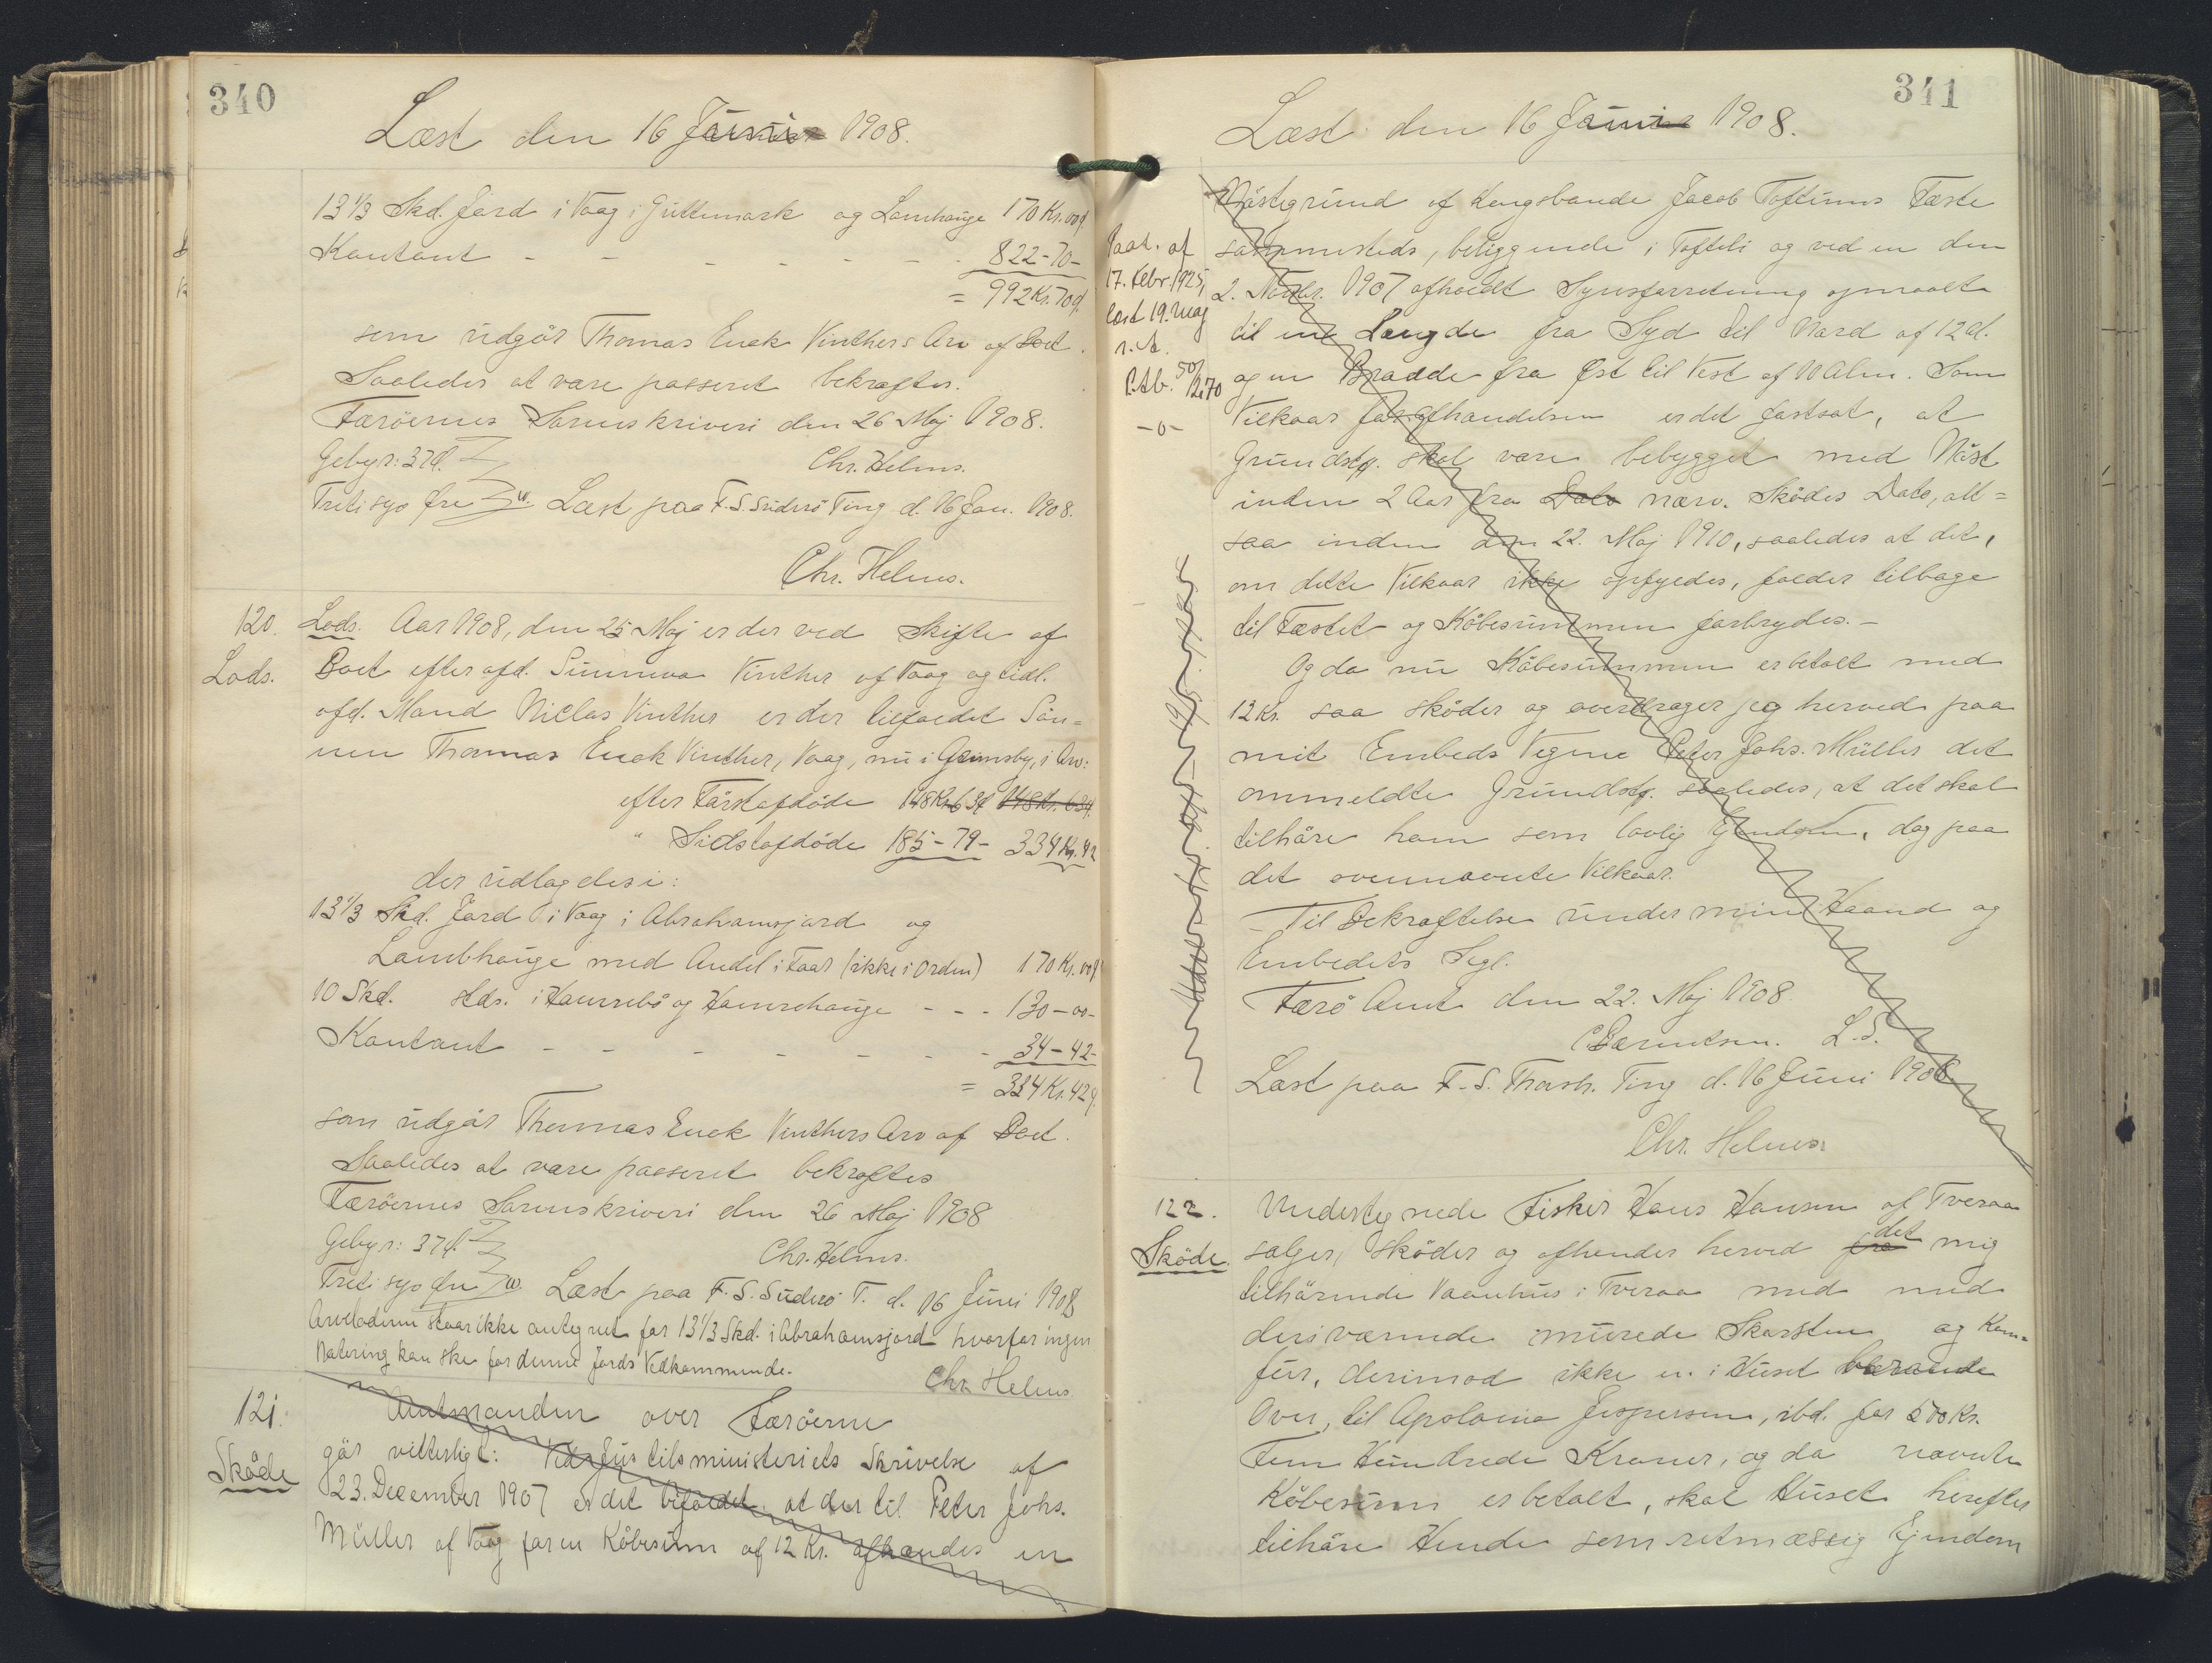 340
Læst den 16 Juni 1908.
13 1/3 Skd. Jord i Vaag i Guttemark og Lamhauge 170 Kr. 00 ø.
Kontant - - - - - - - 822-70-
= 992 Kr. 70 ø.
som udgör Thomas Enok Vinthers Arv af Boet.
Saaledes at være passeret bekræftes.
Færöernes Sorenskriveri den 26 Maj 1908.
Gebyr: 37 ø. Chr. Helms.
Treti syv Øre Læst paa F. S. Suderö Ting d. 16 Jun. 1908.
Chr. Helms.
120. Lods. Aar 1908, den 25 Maj er der ved Skifte af
Lods. Boet efter afd. Sunneva Vinther af Vaag og tidl.
afd. Mand Niclas Vinther er der tilfaldet Sön=
nen Thomas Enok Vinther, Vaag, nu i Grimsby, i Arv:
efter Förstafdöde 148 Kr. 63 ø 148 Kr. 63 ø.
" Sidstafdöde 185-79- 334 Kr. 42
der udlagdes i:
13 1/3 Skd. Jord i Vaag i Abrahamsjord og
Lambhauge med Andel i Faar (ikke i Orden) 170 Kr. 00 ø
10 Skd. sds. i Hamrebö og Hamrehauge - - - 130-00-
Kontant - - - - - - - 34-42-
= 334 Kr. 42 ø.
som udgör Thomas Enok Vinthers Arv af Boet.
Saaledes at være passeret bekræftes
Færöernes Sorenskriveri den 26 Maj 1908
Gebyr: 37 ø. Chr. Helms.
Treti syv Øre Læst paa F. S. Suderö T. d. 16 Juni 1908
Arveladeren staar ikke antegnet for 13 1/3 Skd. i Abrahamsjord hvorfor ingen
Notering kan ske for denne Jords Vedkommende.
Chr. Helms.
121. Amtmanden over Færöerne
Sköde gör vitterligt: Ved Justitsministeriets Skrivelse af
23. December 1907 er det bifaldet, at der til Peter Johs.
Müller af Vaag for en Köbesum af 12 Kr. afhændes en
341
Læst den 16 Juni 1908.
Nöstegrund af Kongsbonde Jacob Toftums Fæste
sammesteds, beliggende i Tofteli og ved en den
2. Novbr. 1907 afholdt Synsforretning opmaalt
til en Længde fra Syd til Nord af 12 Al.
og en Bredde fra Øst til Vest af 10 Alen. Som
Vilkaar for Afhændelsen er det fastsat, at
Grundst. skal være bebygget med Nöst
inden 2 Aar fra Dato nærv. Sködes Dato, alt=
saa inden den 22. Maj 1910, saaledes at det,
om dette Vilkaar ikke opfyldes, falder tilbage
til Fæstet og Köbesummen forbrydes.-
Og da nu Köbesummen er betalt med
12 Kr. saa sköder og overdrager jeg herved paa
mit Embeds Vegne Peter Johs. Müller det
ommeldte Grundst. saaledes, at det skal
tilhöre ham som lovlig Ejendom, dog paa
det ovennævnte Vilkaar.
Til Bekræftelse under min Haand og
Embedets Segl.
Færö Amt den 22. Maj 1908.
C Bærentsen. L.S.
Læst paa F. S. Thorsh. Ting d. 16 Juni 1908
Chr. Helms
Paat. af
17. Febr. 1925,
læst 19. Maj
s. A.
-0-
122. Undertegnede Fisker Hans Hansen af Tveraa
Sköde. sælger, sköder og afhender herved fra det mig
tilhörende Vaanhus i Tveraa med med
deri værende murede Skorsten og Kom=
fur, derimod ikke en i Huset værende
Ovn, til Apolonia Jespersen, ibd. for 500 Kr.
Fem Hundrede Kroner, og da nævnte
Köbesum er betalt, skal Huset herefter
tilhöre Hende som retmæssig Ejendom